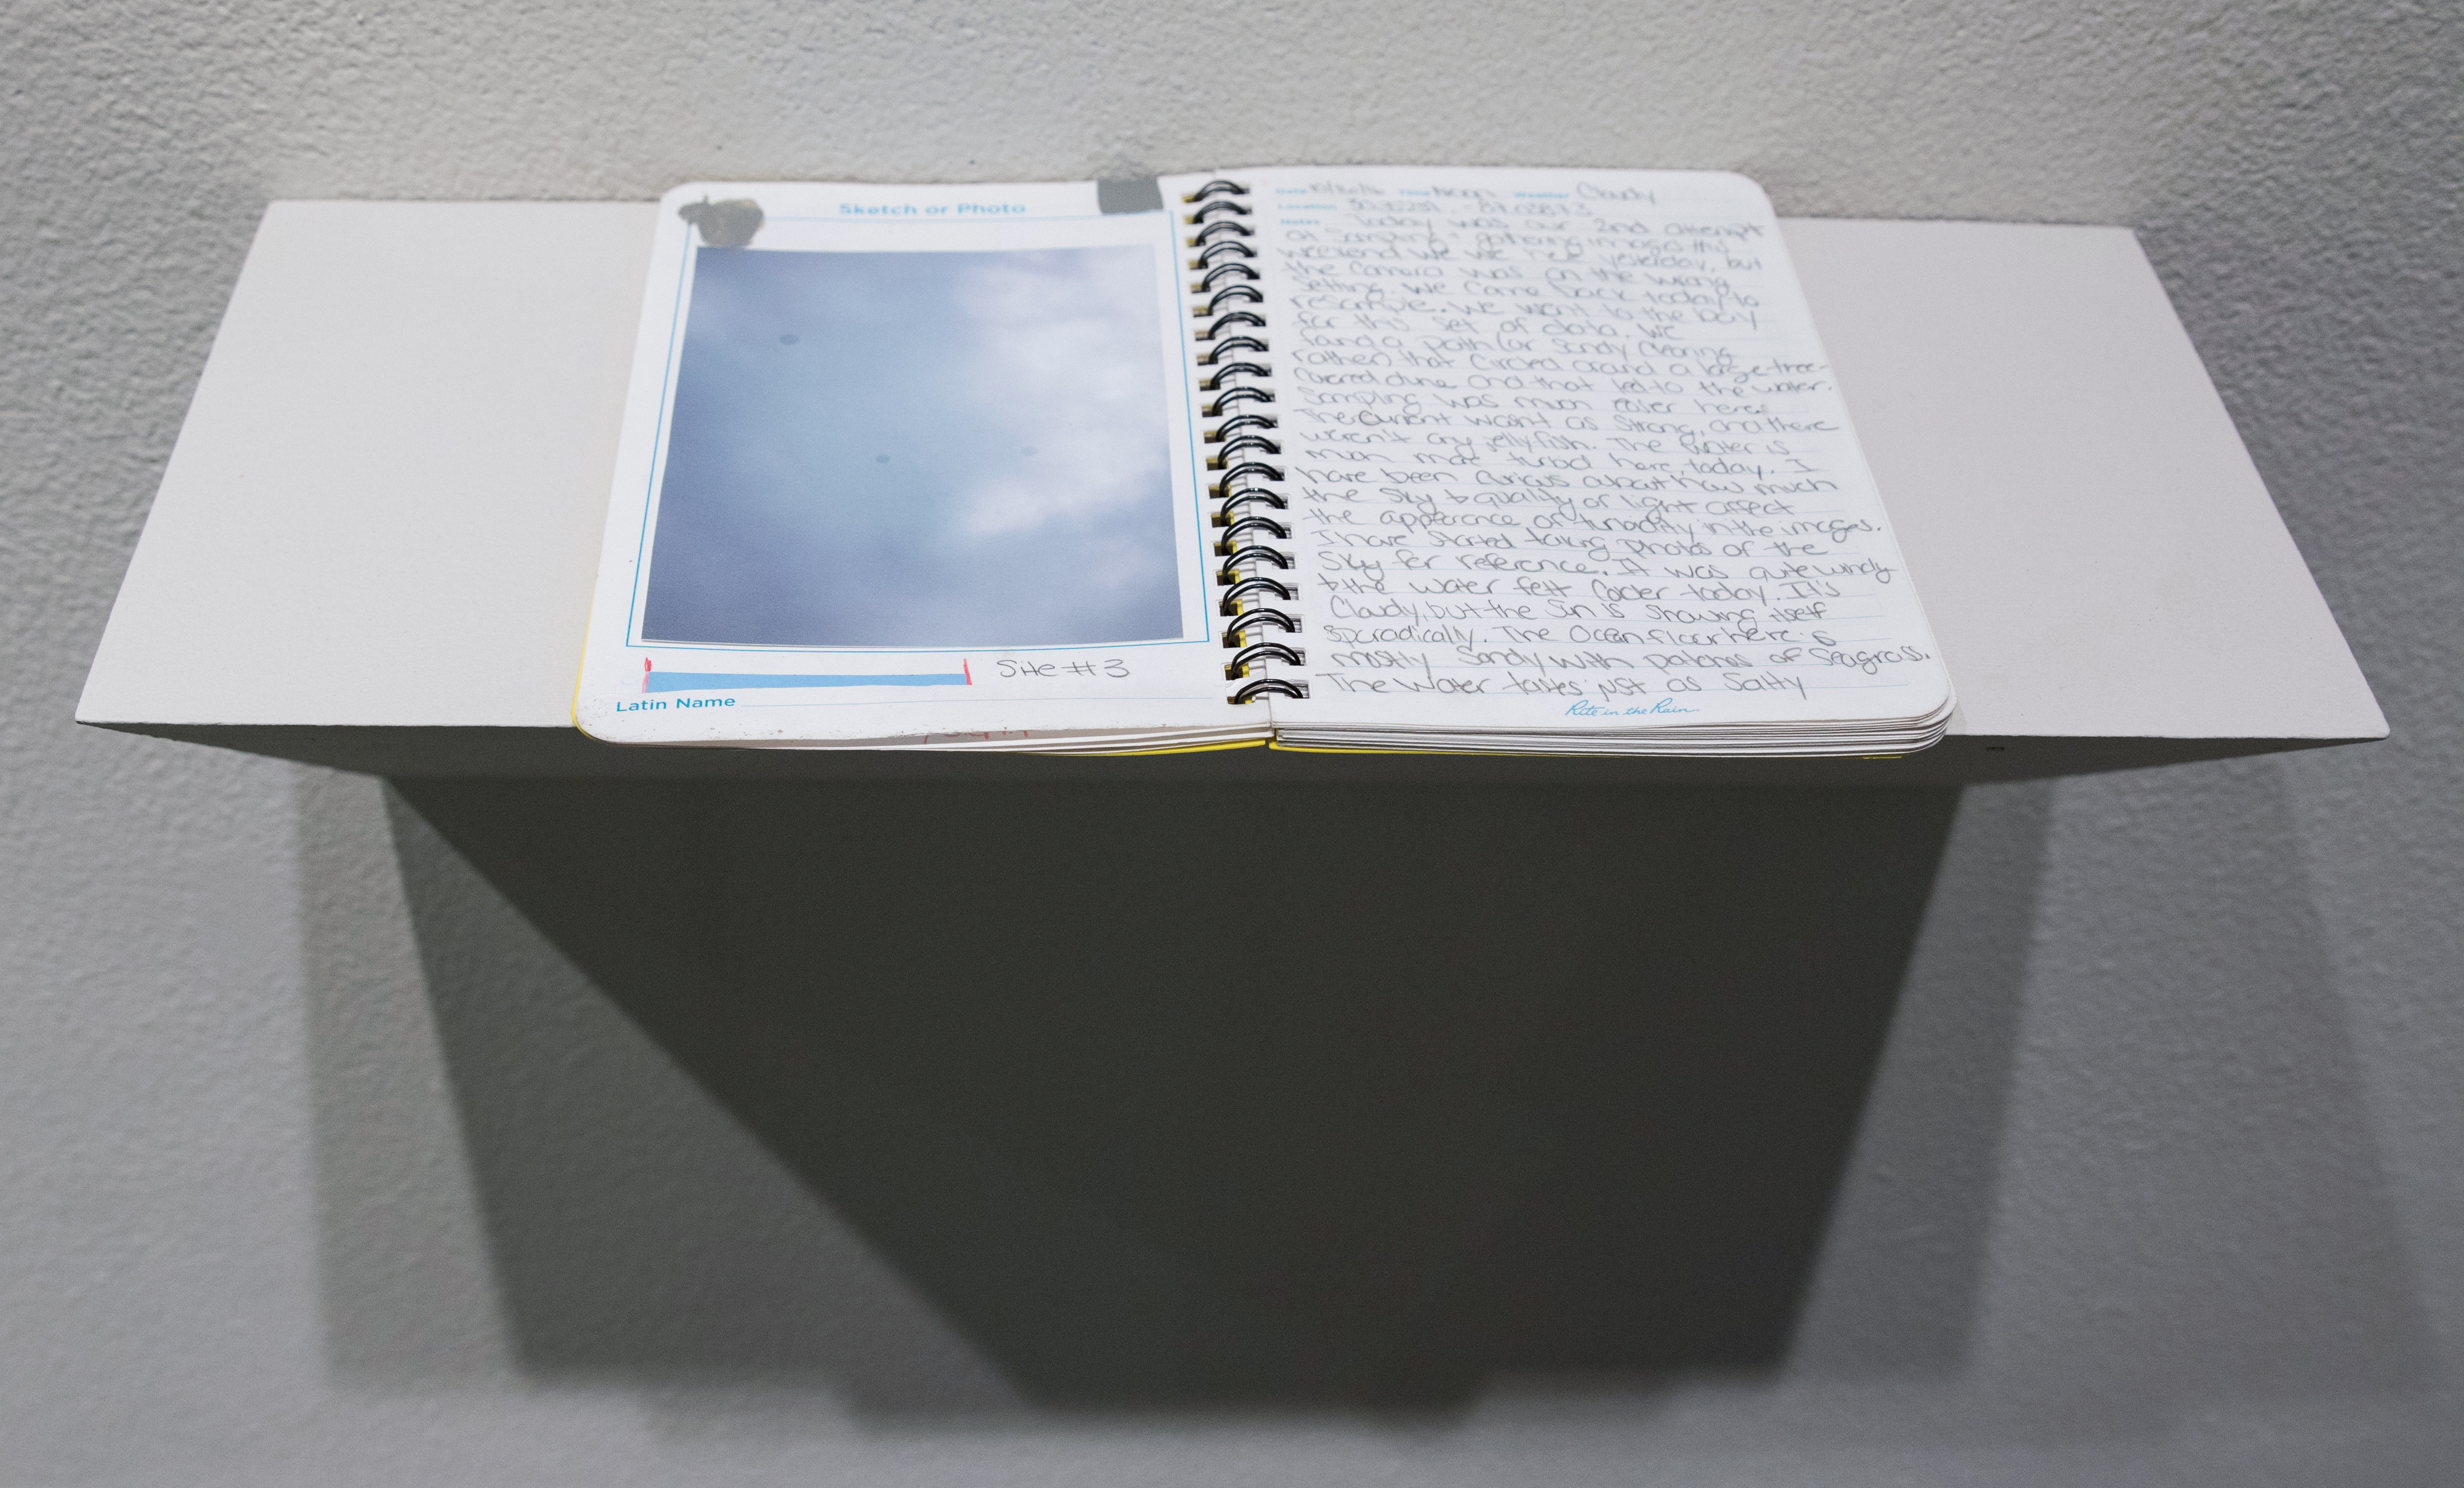 Sketch or Photo
Site #3
Latin Name
Date Time Noon Weather Cloudy
Location
Notes Today was our 2nd attempt
at sampling + gathering images this
weekend. We were here yesterday, but
the camera was on the wrong
setting. We came back today to
resample. We went to the bay
for this set of data. We
found a path (or sandy clearing
rather) that circled around a large tree-
covered dune and that led to the water.
Sampling was much easier here.
The current wasn't as strong, and there
weren't any jellyfish. The water is
much more turbid here, today. I
have been curious about how much
the sky + quality of light affect
the appearance of turbidity in the images.
I have started taking photos of the
sky for reference. It was quite windy
+ the water felt cooler today. It's
cloudy, but the sun is showing itself
sporadically. The ocean floor here is
mostly sandy with patches of seagrass.
The water tastes just as salty
Rite in the Rain